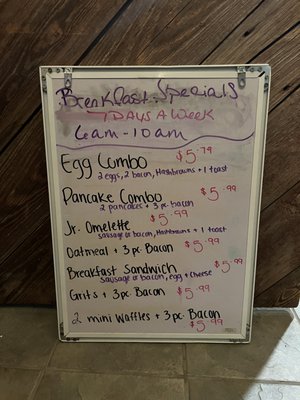 Breakfast Specials
7 DAYS A WEEK
6am - 10am
Egg Combo $5.79
2 eggs, 2 bacon, Hashbrowns + 1 toast
Pancake Combo $5.99
2 pancakes + 3 pc. bacon
Jr. Omelette $5.99
sausage or bacon, Hashbrowns + 1 toast
Oatmeal + 3 pc. Bacon $5.99
Breakfast Sandwich $5.99
Sausage or bacon, egg + cheese
Grits + 3 pc. Bacon $5.99
2 mini Waffles + 3 pc. Bacon
$5.99